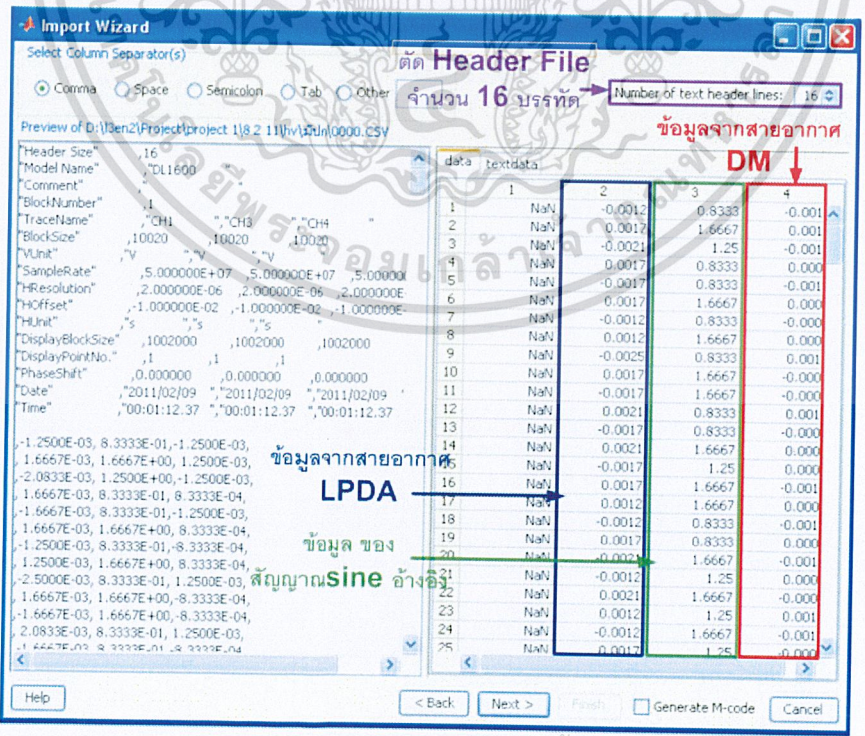 Import Wizard
Select Column Separator(s)
Comma Space Semicolon Tab Other
ตัด Header File
จำนวน 16 บรรทัด
Number of text header lines: 16
Preview of D:\l3en2\Project\project 1\8 2 11\hv\มีปก\0000.CSV
ข้อมูลจากสายอากาศ
DM
"Header Size" ,16
"Model Name" ,"DL1600 "
"Comment" ," "
"BlockNumber" ,1
"TraceName" ,"CH1 ","CH3 ","CH4 "
"BlockSize" ,10020 ,10020 ,10020
"VUnit" ,"V ","V ","V
"SampleRate" ,5.000000E+07 ,5.000000E+07 ,5.00000(
"HResolution" ,2.000000E-06 ,2.000000E-06 ,2.000000E
"HOffset" ,-1.000000E-02 ,-1.000000E-02 ,-1.000000E-
"HUnit" ,"s ","s ","s
"DisplayBlockSize" ,1002000 ,1002000 ,1002000
"DisplayPointNo." ,1 ,1 ,1
"PhaseShift" ,0.000000 ,0.000000 ,0.000000
"Date" ,"2011/02/09 ","2011/02/09 ","2011/02/09 '
"Time" ,"00:01:12.37 ","00:01:12.37 ","00:01:12.37
,-1.2500E-03, 8.3333E-01,-1.2500E-03,
, 1.6667E-03, 1.6667E+00, 1.2500E-03,
,-2.0833E-03, 1.2500E+00,-1.2500E-03,
, 1.6667E-03, 8.3333E-01, 8.3333E-04,
,-1.6667E-03, 8.3333E-01,-1.2500E-03,
, 1.6667E-03, 1.6667E+00, 8.3333E-04,
,-1.2500E-03, 8.3333E-01,-8.3333E-04,
, 1.2500E-03, 1.6667E+00, 8.3333E-04,
,-2.5000E-03, 8.3333E-01, 1.2500E-03,
, 1.6667E-03, 1.6667E+00,-8.3333E-04,
,-1.6667E-03, 1.6667E+00,-8.3333E-04,
, 2.0833E-03, 8.3333E-01, 1.2500E-03,
,-1.6667E-03, 8.3333E-01,-8.3333E-04
ข้อมูลจากสายอากาศ
LPDA
ข้อมูล ของ
สัญญาณsine อ้างอิง
data textdata
1 2 3 4
1 NaN -0.0012 0.8333 -0.001
2 NaN 0.0017 1.6667 0.001
3 NaN -0.0021 1.25 -0.001
4 NaN 0.0017 0.8333 0.000
5 NaN -0.0017 0.8333 -0.001
6 NaN 0.0017 1.6667 0.000
7 NaN -0.0012 0.8333 -0.000
8 NaN 0.0012 1.6667 0.000
9 NaN -0.0025 0.8333 0.001
10 NaN 0.0017 1.6667 -0.000
11 NaN -0.0017 1.6667 -0.000
12 NaN 0.0021 0.8333 0.001
13 NaN -0.0017 0.8333 -0.000
14 NaN 0.0021 1.6667 0.000
15 NaN -0.0017 1.25 0.000
16 NaN 0.0017 1.6667 -0.001
17 NaN 0.0012 1.6667 0.000
18 NaN -0.0012 0.8333 -0.001
19 NaN 0.0017 0.8333 0.000
20 NaN -0.0021 1.6667 -0.001
21 NaN -0.0012 1.25 0.000
22 NaN 0.0021 1.6667 -0.000
23 NaN 0.0012 1.25 0.001
24 NaN -0.0012 1.6667 -0.001
25 NaN 0.0017 1.25 -0.000
Help
< Back Next > Finish Generate M-code Cancel